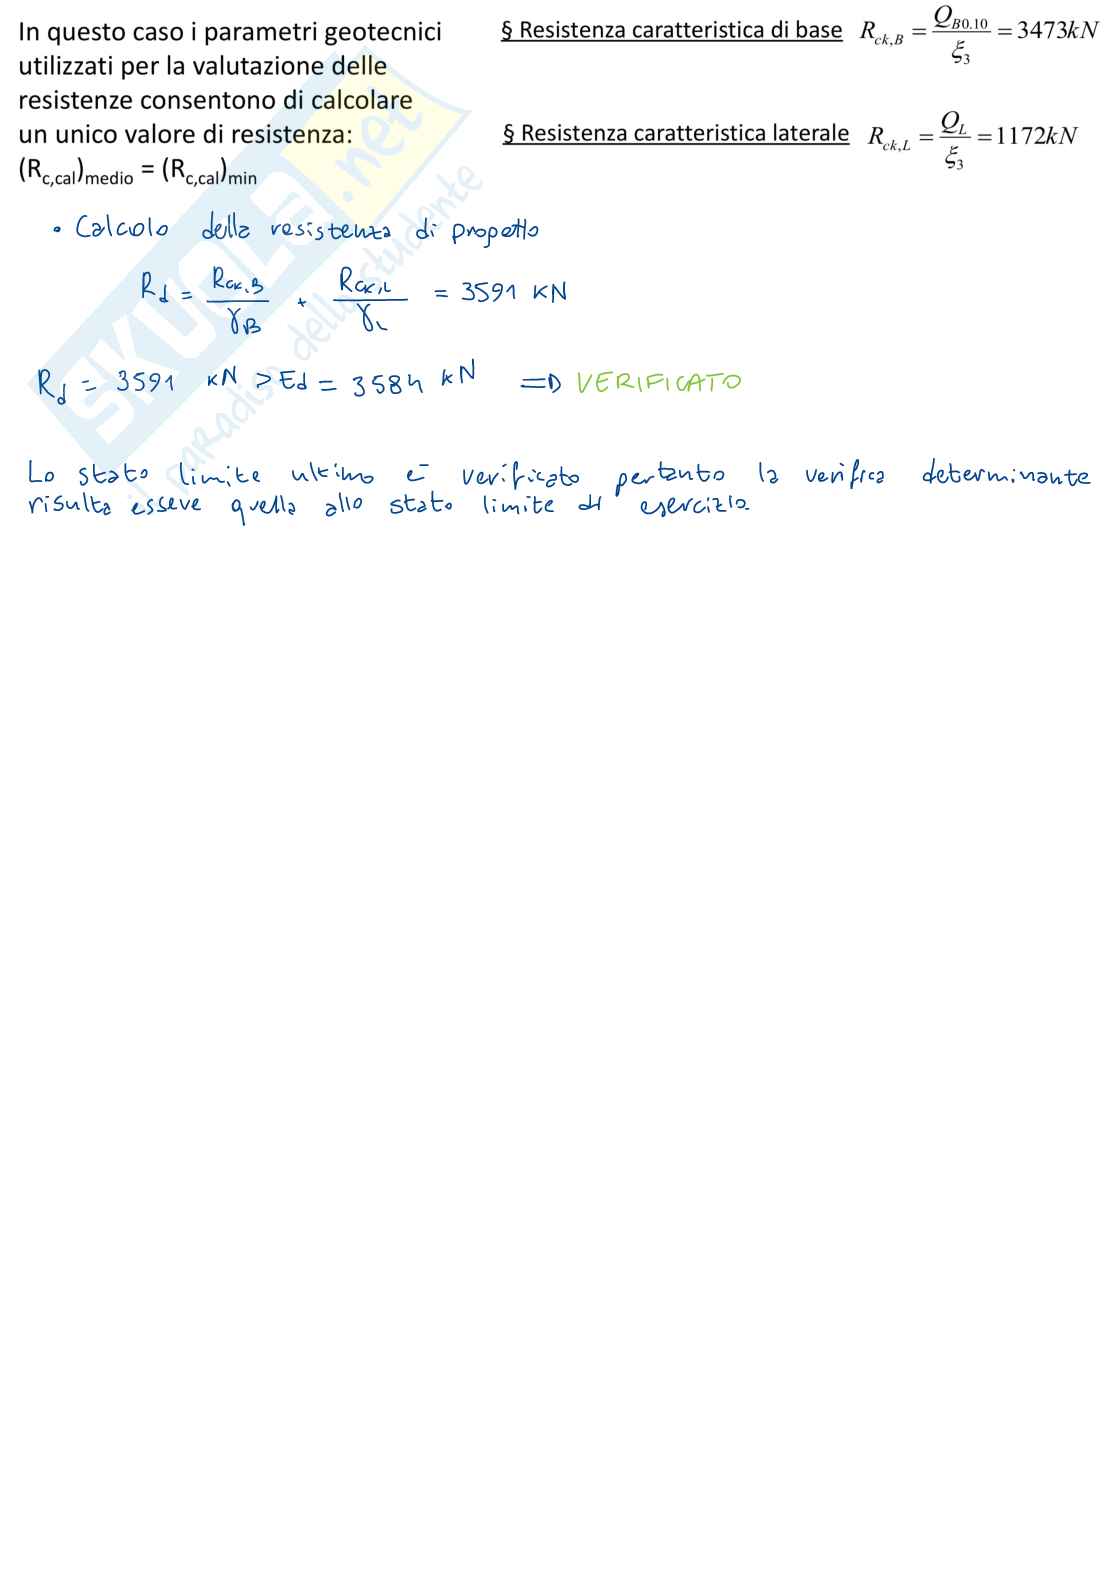 In questo caso i parametri geotecnici
utilizzati per la valutazione delle
resistenze consentono di calcolare
un unico valore di resistenza:
(R_c,cal)_medio = (R_c,cal)_min
§ Resistenza caratteristica di base R_ck,B = Q_B0.10 / ξ_3 = 3473kN
§ Resistenza caratteristica laterale R_ck,L = Q_L / ξ_3 = 1172kN
• Calcolo della resistenza di progetto
R_d = R_ck,B / γ_B + R_ck,L / γ_L = 3591 KN
R_d = 3591 KN > Ed = 3584 KN => VERIFICATO
Lo stato limite ultimo è verificato pertanto la verifica determinante
risulta essere quella allo stato limite di esercizio.
SKUOLA.net
il paradiso dello studente